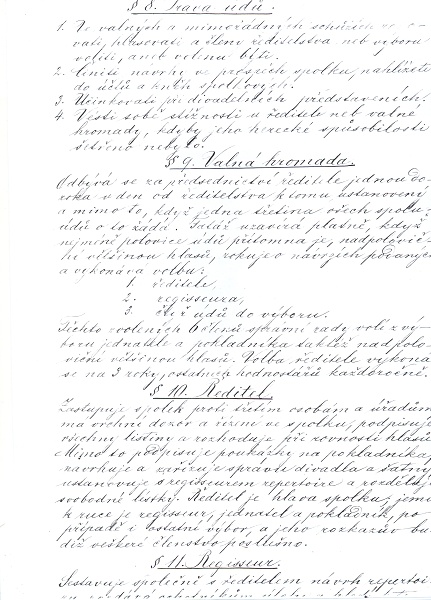 § 8. Práva údů.
1. Ve valných a mimořádných schůzích
hlasovati a členy ředitelstva neb výboru
voliti, aneb volenu býti.
2. Činiti návrhy ve prospěch spolku, nahlížeti
do účtů a knih spolkových.
3. Účinkovati při divadelních představeních.
4. Vésti sobě stížnosti u ředitele neb valné
hromady, kdyby jeho herecké způsobilosti
šetřeno nebylo.
§ 9. Valná hromada.
Odbývá se za předsednictví ředitele jednou do
roka v den od ředitelstva k tomu ustanovení
a mimo to, když jedna třetina všech spolu
údů o to žádá. Tatáž uzavírá platně, když
nejméně polovice údů přítomna je, nadpolovič
ní většinou hlasů, rokuje o návrzích podaných
a vykonává volbu:
1. ředitele,
2. regisseura,
3. čtyř údů do výboru.
Těchto volených 6 členů správní rady volí z vý-
boru jednatele a pokladníka taktéž nadpolo-
viční většinou hlasů. Volba ředitele vykoná
se na 3 roky, ostatních hodnostářů každoročně.
§ 10. Ředitel
Zastupuje spolek proti třetím osobám a úřadům
má vrchní dozor a řízení ve spolku, podpisuje
všechny listiny a rozhoduje při rovnosti hlasů.
Mimo to podpisuje poukázky na pokladníka,
navrhuje a zařizuje správu divadla a šatny,
ustanovuje s regisseurem repertoire a rozděluje
svobodné lístky. Ředitel je hlava spolku, jemu
k ruce je regisseur, jednatel a pokladník, po
případě i ostatní výbor, a jeho rozkazův bu
diž veškeré členstvo poslušno.
§ 11. Regisseur.
Sestavuje společně s ředitelem návrh repertoi